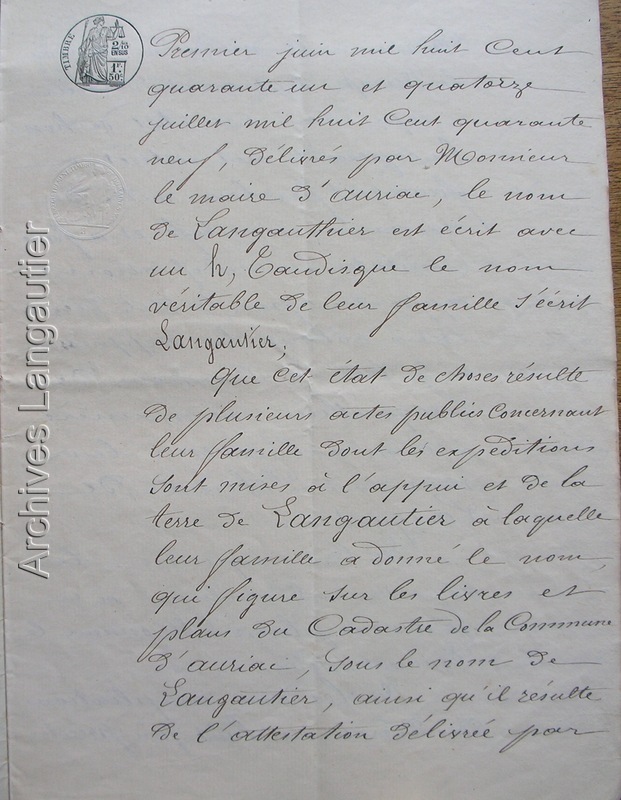 TIMBRE
2/10
EN SUS
1F.
50C.
Premier juin mil huit Cent
quarante un et quatorze
juillet mil huit Cent quarante
neuf, délivrés par Monsieur
le maire d'auriac, le nom
de Langauthier est écrit avec
un h, Tandisque le nom
véritable de leur famille s'écrit
Langautier;
Que cet état de choses résulte
de plusieurs actes publics Concernant
leur famille dont les expéditions
sont mises à l'appui et de la
terre de Langautier à laquelle
leur famille a donné le nom,
qui figure sur les livres et
plans du Cadastre de la Commune
d'auriac, sous le nom de
Langautier, ainsi qu'il résulte
de l'attestation délivrée par
Archives Langautier